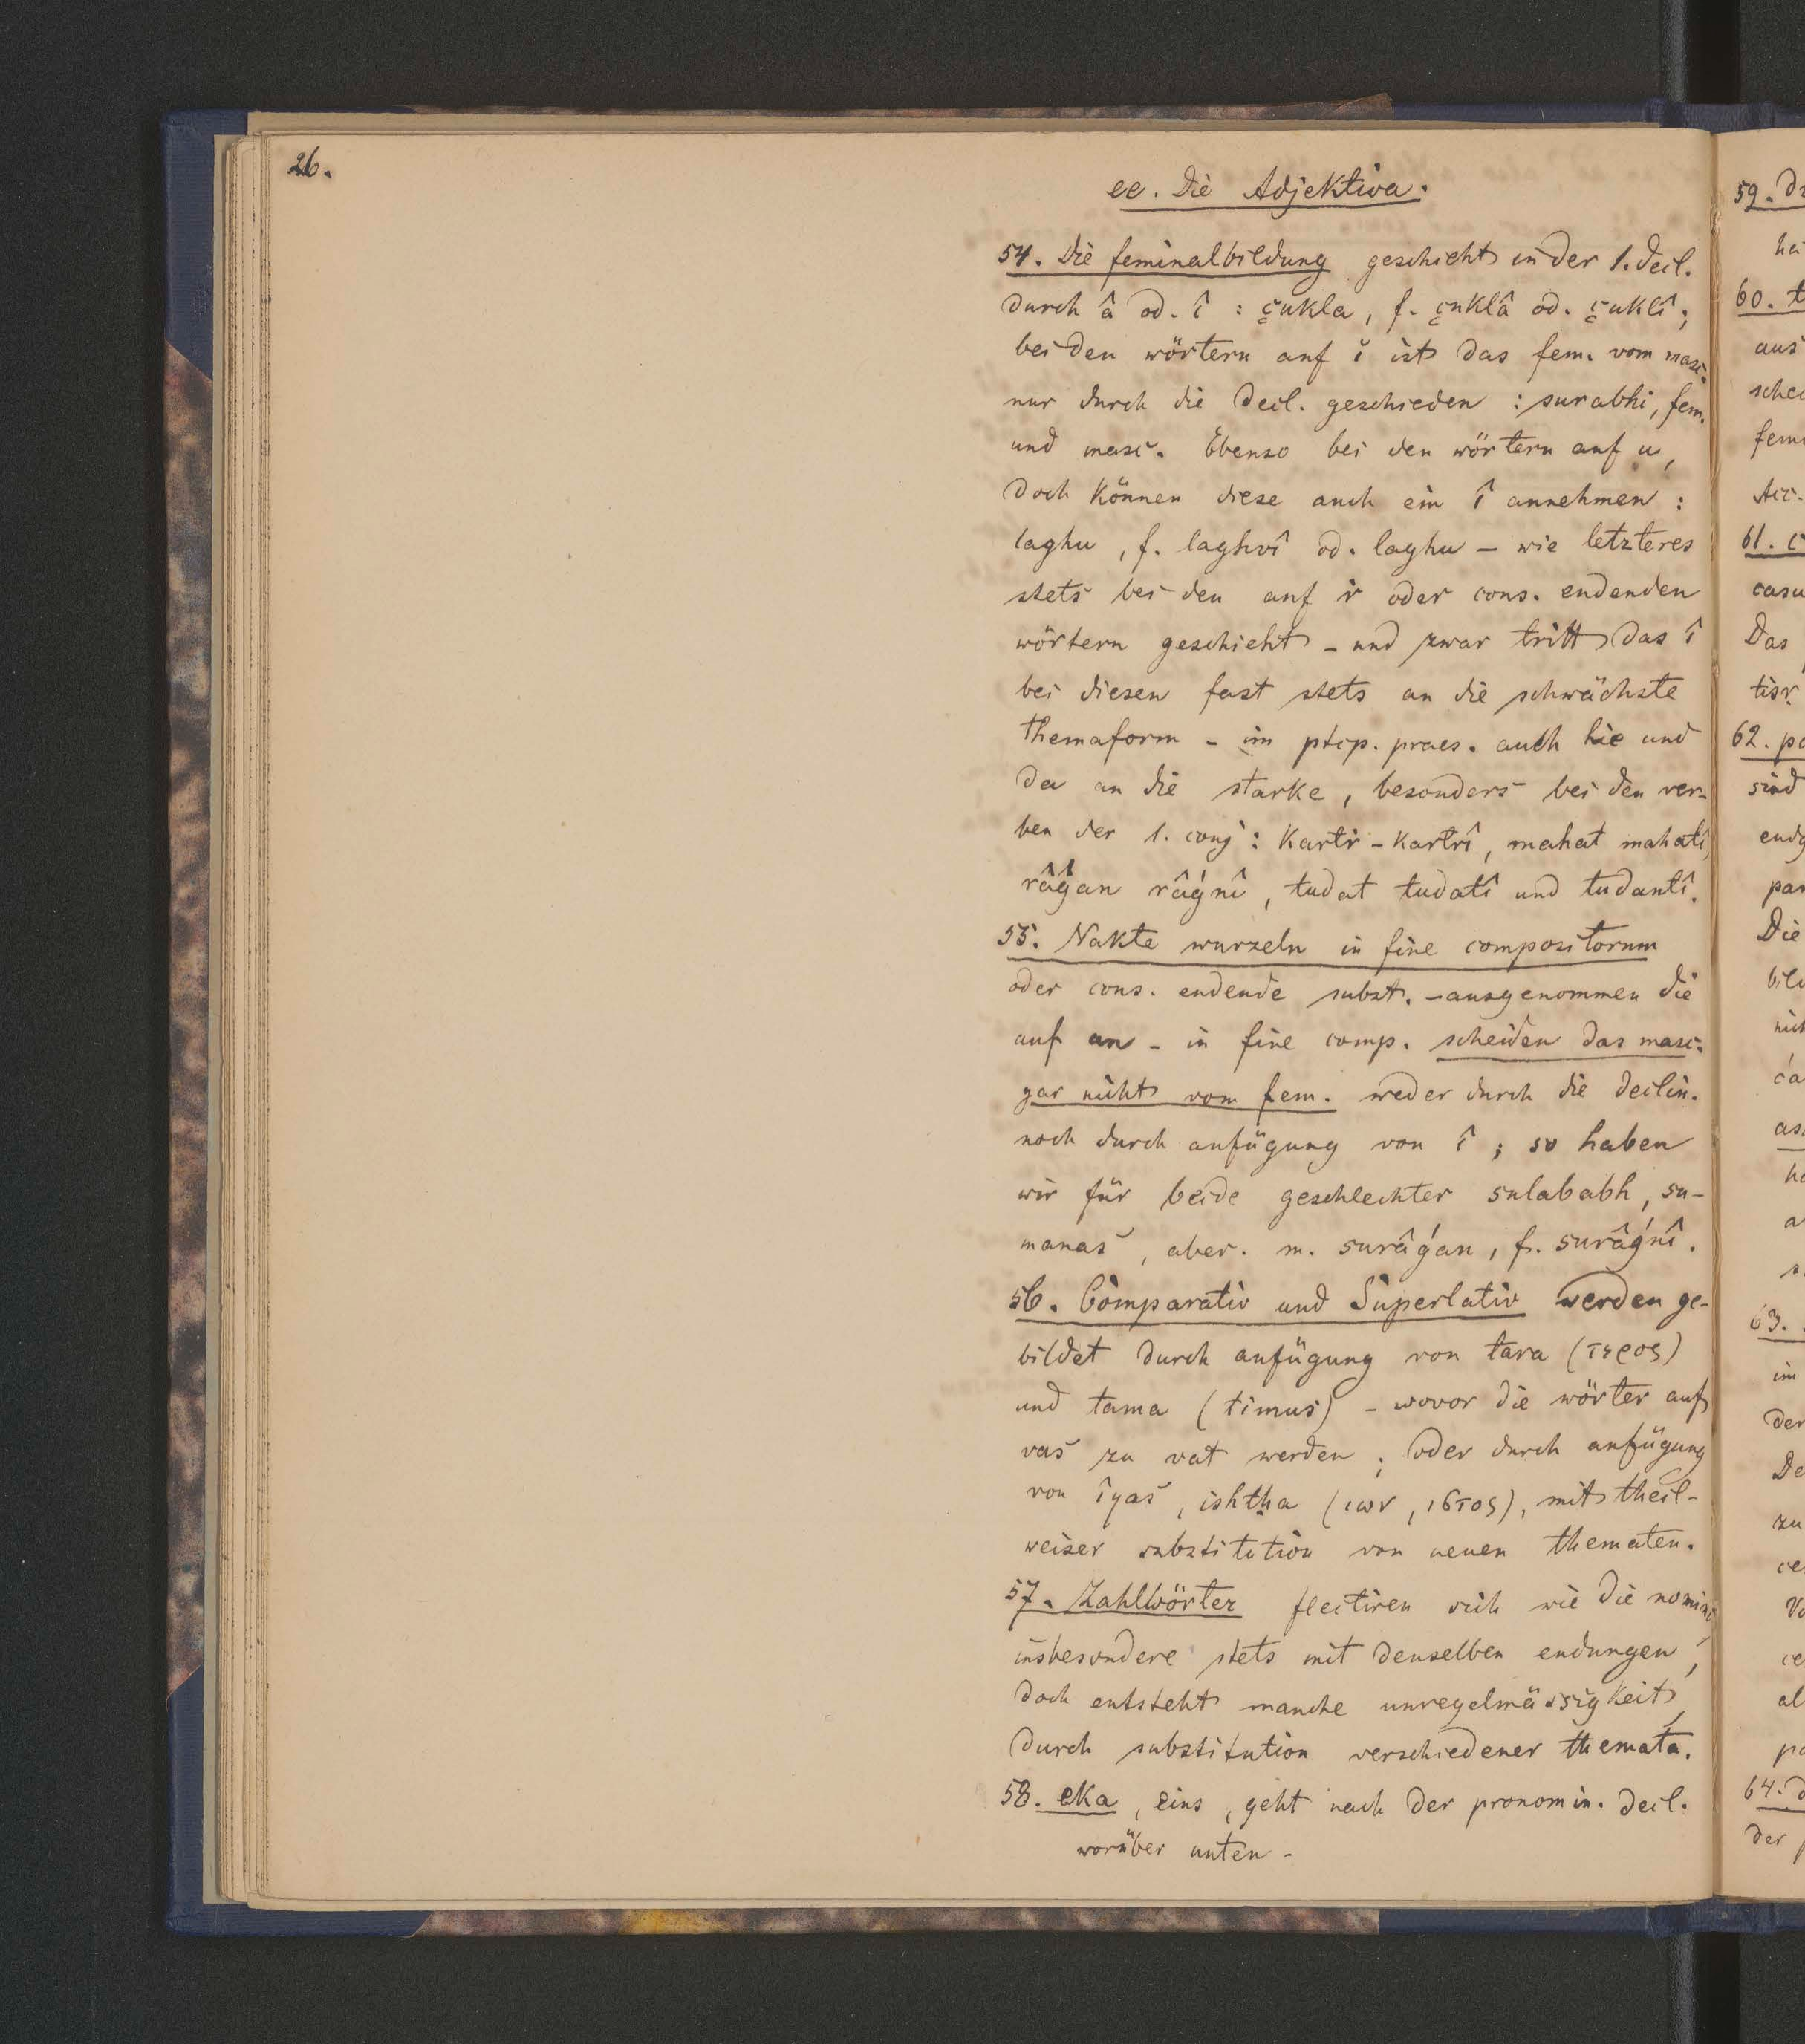 26.
ee. Die Adjektiva.
54. Die feminalbildung geschieht in der 1. decl.
durch â od. î : çukla, f. çuklâ od. çuklî;
bei den wörtern auf ĭ ist das fem. vom masc.
nur durch die decl. geschieden : surabhi, fem.
und masc. Ebenso bei den wörtern auf u,
doch können diese auch ein î annehmen :
laghu, f. laghvî od. laghu – wie letzteres
stets bei den auf ṛ oder cons. endenden
wörtern geschieht – und zwar tritt das î
bei diesen fast stets an die schwächste
themaform – im ptcp. praes. auch hie und
da an die starke, besonders bei den ver-
ben der 1. conj : kartṛ – kartrî, mahat mahatî,
râǵan râǵnî, tudat tudatî und tudantî.
55. Nakte wurzeln in fine compositorum
oder cons. endende subst. – ausgenommen die
auf an – in fine comp. scheiden das masc.
gar nicht vom fem. weder durch die declin.
noch durch anfügung von î ; so haben
wir für beide geschlechter sulababh, su-
manas, aber. m. surâǵan, f. surâǵnî.
56. Comparativ und Superlativ werden ge-
bildet durch anfügung von tara (τερος)
und tama (timus) – wovor die wörter auf
vas zu vat werden ; oder durch anfügung
von îyas, ishṭha (ιων, ιστος), mit theil-
weiser substitution von neuen thematen.
57. Zahlwörter flectiren sich wie die nomina,
insbesondere stets mit denselben endungen,
doch entsteht manche unregelmässigkeit,
durch substitution verschiedener themata.
58. eka, eins, geht nach der pronomin. decl.
worüber unten –
59.
60.
aus
61.
Das
tisṛ
62.
sind
Die
63.
im
der
zu
64.
der